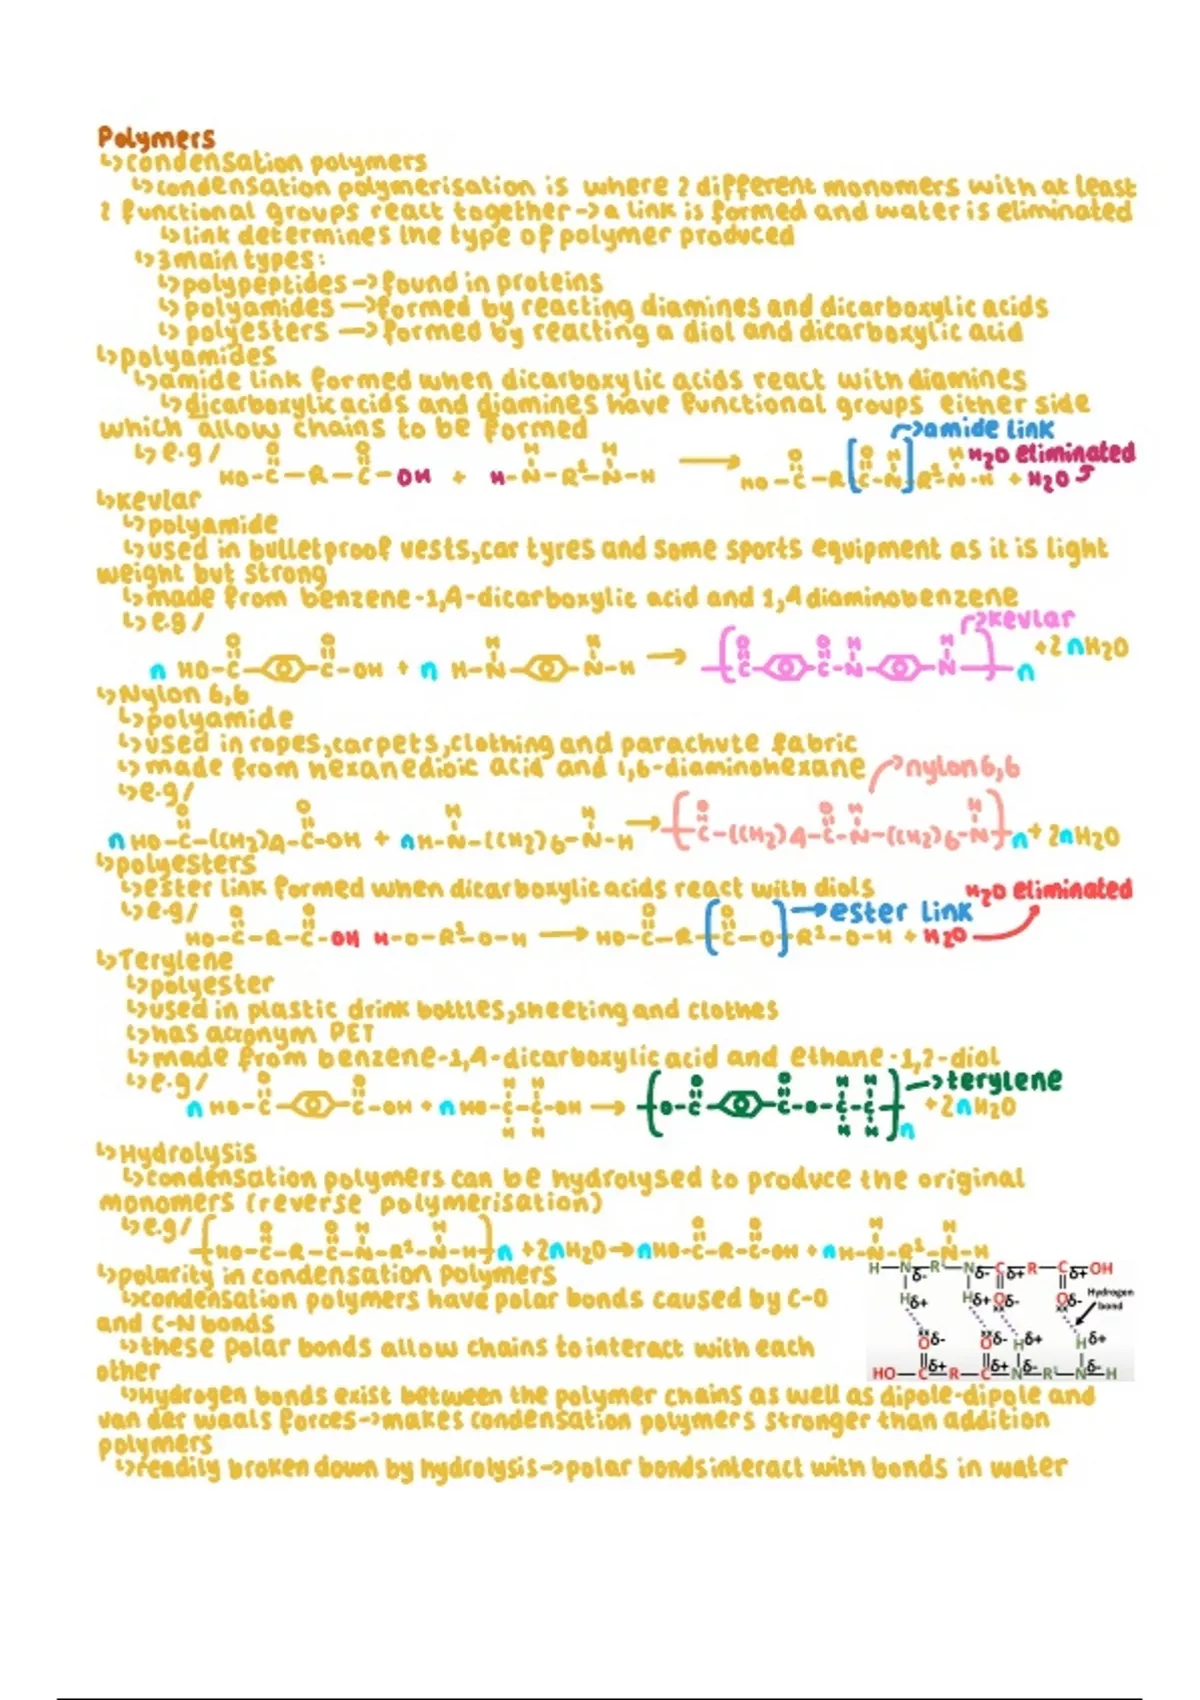 Polymers
↳condensation polymers
↳condensation polymerisation is where 2 different monomers with at least
2 functional groups react together → a link is formed and water is eliminated
↳link determines the type of polymer produced
↳3 main types:
↳polypeptides → found in proteins
↳polyamides → formed by reacting diamines and dicarboxylic acids
↳polyesters → formed by reacting a diol and dicarboxylic acid
↳polyamides
↳amide link formed when dicarboxylic acids react with diamines
↳dicarboxylic acids and diamines have functional groups either side
which allow chains to be formed
→amide link
↳e.g/ HO-C-R-C-OH + H-N-R¹-N-H → HO-C-R[C-N]R¹-N-H + H2O
H2O eliminated
↳kevlar
↳polyamide
↳used in bulletproof vests, car tyres and some sports equipment as it is light
weight but strong
↳made from benzene-1,4-dicarboxylic acid and 1,4 diaminobenzene
↳e.g/
→kevlar
n HO-C-C-OH + n H-N-N-H → [C-C-N-N]n +2nH2O
↳Nylon 6,6
↳polyamide
↳used in ropes, carpets, clothing and parachute fabric
↳made from hexanedioic acid and 1,6-diaminohexane
→nylon 6,6
↳e.g/
nHO-C-(CH2)4-C-OH + nH-N-(CH2)6-N-H → [C-(CH2)4-C-N-(CH2)6-N]n + 2nH2O
↳polyesters
↳ester link formed when dicarboxylic acids react with diols
H2O eliminated
↳e.g/
→ester link
HO-C-R-C-OH H-O-R¹-O-H → HO-C-R[C-O]R¹-O-H + H2O
↳Terylene
↳polyester
↳used in plastic drink bottles, sheeting and clothes
↳has acronym PET
↳made from benzene-1,4-dicarboxylic acid and ethane-1,2-diol
↳e.g/
→terylene
n HO-C-C-OH + nHO-C-C-OH → [O-C-C-O-C-C]n +2nH2O
↳Hydrolysis
↳condensation polymers can be hydrolysed to produce the original
monomers (reverse polymerisation)
↳e.g/ [HO-C-R-C-N-R¹-N-H]n +2nH2O→nHO-C-R-C-OH + nH-N-R¹-N-H
↳polarity in condensation polymers
↳condensation polymers have polar bonds caused by C-O
and C-N bonds
↳these polar bonds allow chains to interact with each
other
H N δ- R' N δ- C δ+ R C δ+ OH
H δ+ H δ+ O δ- O δ- Hydrogen bond
O δ- O δ- H δ+ H δ+
HO C δ+ R C δ+ N δ- R' N δ- H
↳Hydrogen bonds exist between the polymer chains as well as dipole-dipole and
van der waals forces → makes condensation polymers stronger than addition
polymers
↳readily broken down by hydrolysis → polar bonds interact with bonds in water